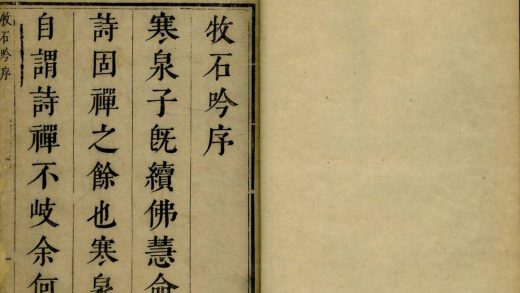 牧石吟序
寒泉子既續佛慧命
詩固禪之餘也寒泉
自謂詩禪不岐余何
牧石吟序